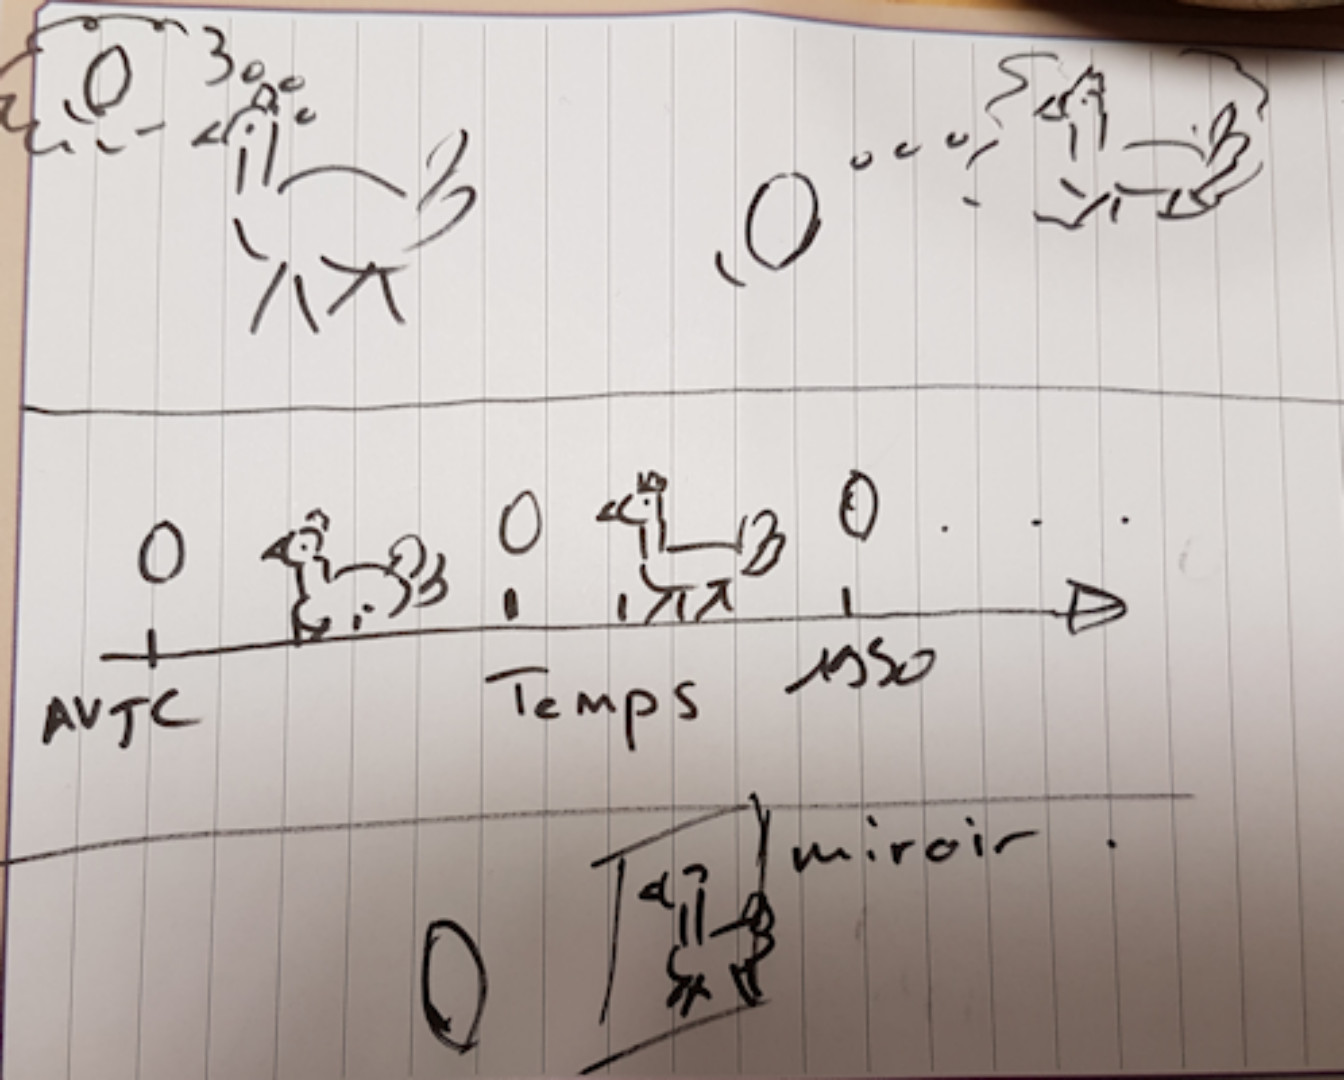 AVJC
Temps
1950
miroir